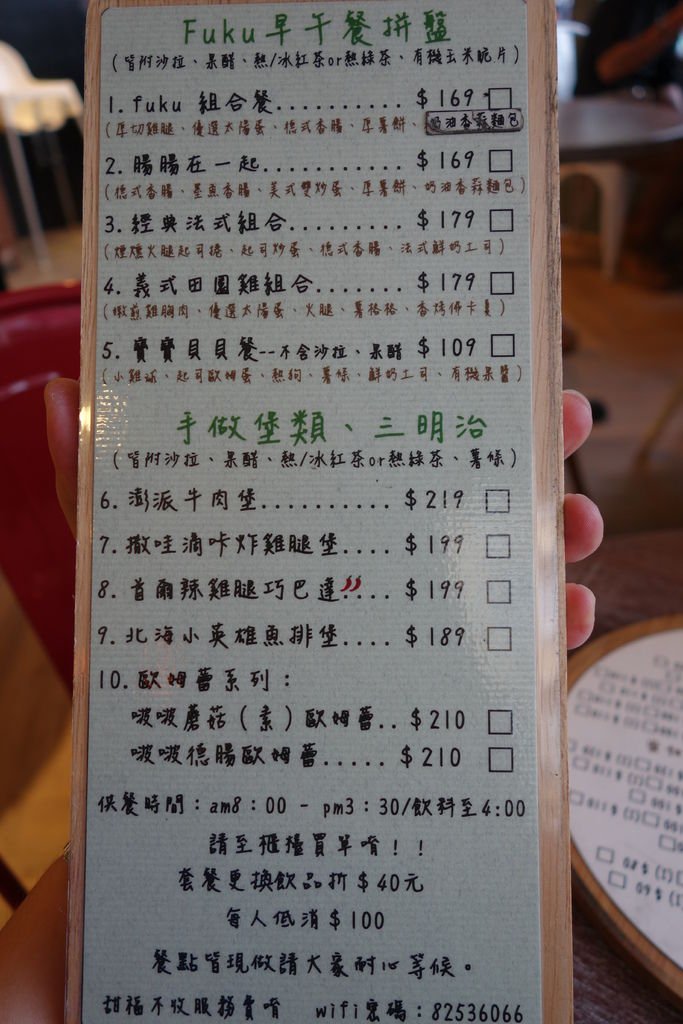 Fuku早午餐拼盤
(皆附沙拉、果醋、熱/冰紅茶or熱綠茶、有機玉米脆片)
1. fuku 組合餐.......... $ 169 □
(厚切雞腿、優選太陽蛋、德式香腸、厚薯餅、奶油香蒜麵包
2. 腸腸在一起.......... $ 169 □
(德式香腸、墨魚香腸、美式雙炒蛋、厚薯餅、奶油香蒜麵包)
3. 經典法式組合........ $ 179 □
(煙燻火腿起司捲、起司炒蛋、德式香腸、法式鮮奶土司)
4. 義式田園雞組合....... $ 179 □
(嫩煎雞胸肉、優選太陽蛋、火腿、薯格格、香烤佛卡夏)
5. 寶寶貝貝餐--不含沙拉、果醋 $ 109 □
(小雞球、起司歐姆蛋、熱狗、薯條、鮮奶土司、有機果醬)
手做堡類、三明治
(皆附沙拉、果醋、熱/冰紅茶or熱綠茶、薯條)
6. 澎派牛肉堡.......... $ 219 □
7. 撒哇滴咔炸雞腿堡.... $ 199 □
8. 首爾辣雞腿巧巴達.... $ 199 □
9. 北海小英雄魚排堡.... $ 189 □
10. 歐姆蕾系列：
啵啵蘑菇(素)歐姆蕾.. $210 □
啵啵德腸歐姆蕾..... $ 210 □
供餐時間：am8：00 - pm3：30/飲料至4:00
請至櫃檯買單唷！！
套餐更換飲品折＄40元
每人低消＄100
餐點皆現做請大家耐心等候。
甜福不收服務費唷 wifi密碼：82536066